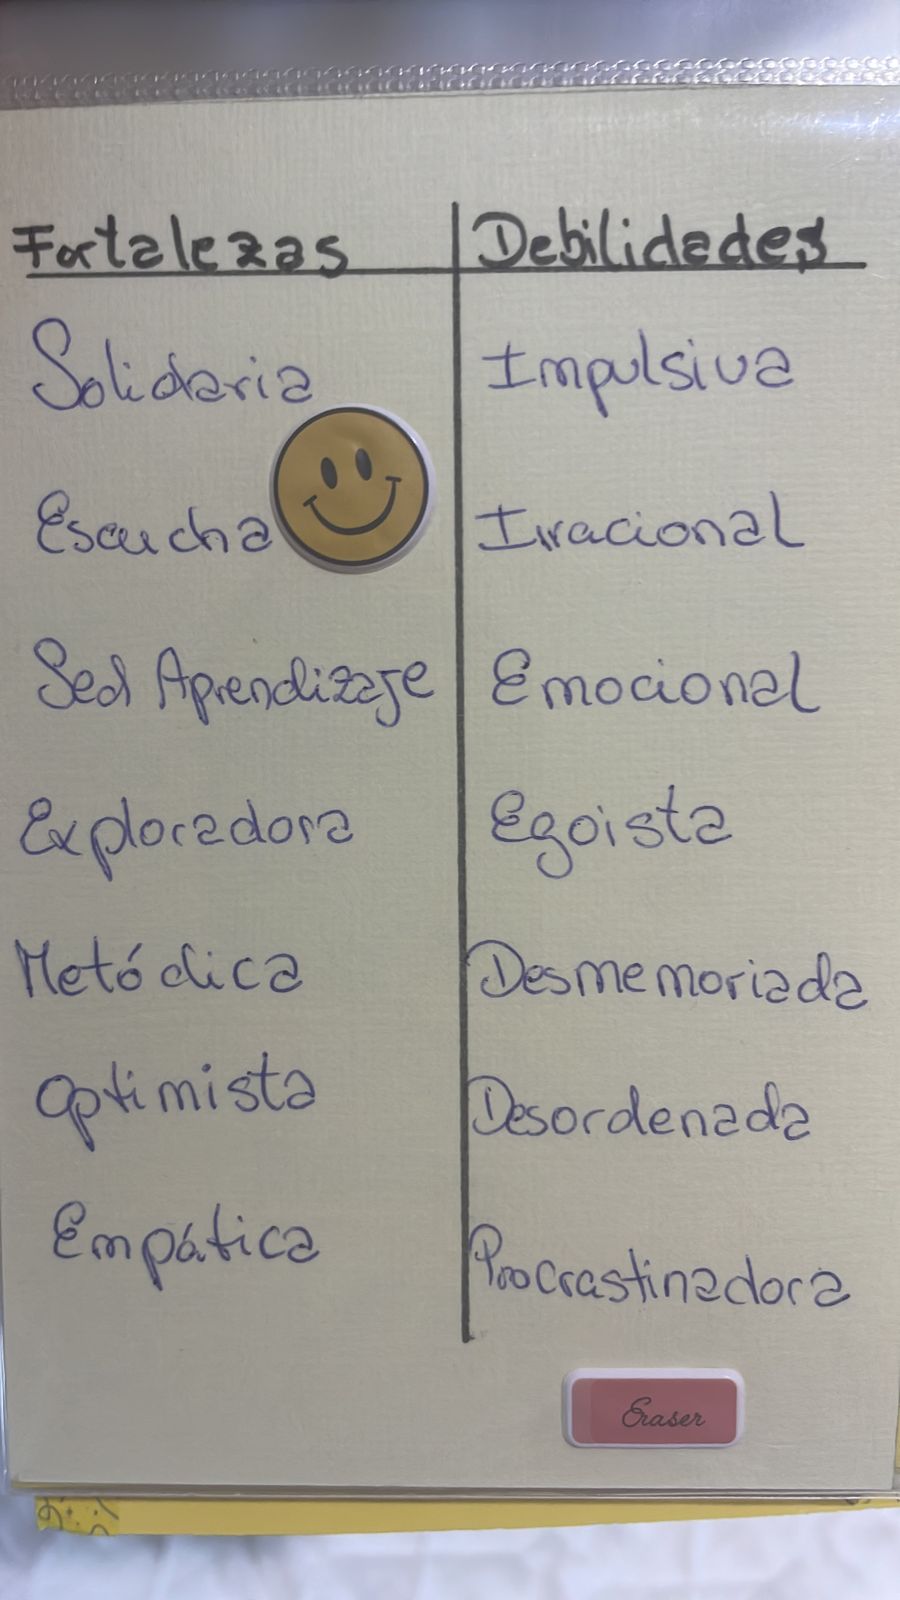 Fortalezas
Debilidades
Solidaria
Impulsiva
Escucha
Irracional
Sed Aprendizaje
Emocional
Exploradora
Egoista
Metódica
Desmemoriada
Optimista
Desordenada
Empática
Procrastinadora
Eraser